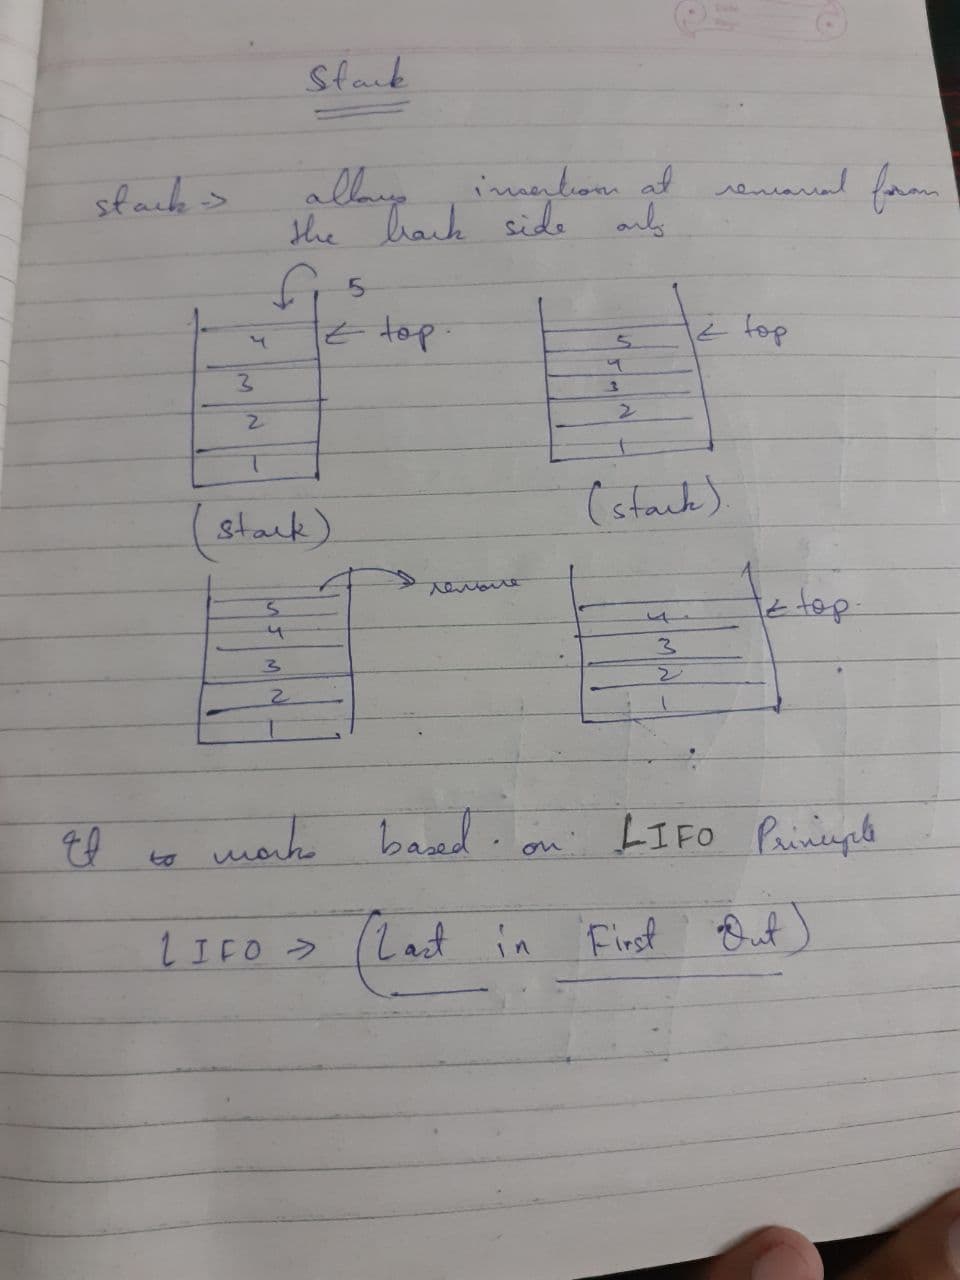 Stack
stack -> allows insertion at removal from
the back side only
5
4
<- top.
3
2
1
5
<- top
4
3
2
1
(stack)
(stack).
5
remove
4
3
2
1
4
<- top.
3
2
1
It to works based on LIFO Principle
LIFO -> (Last in First Out)